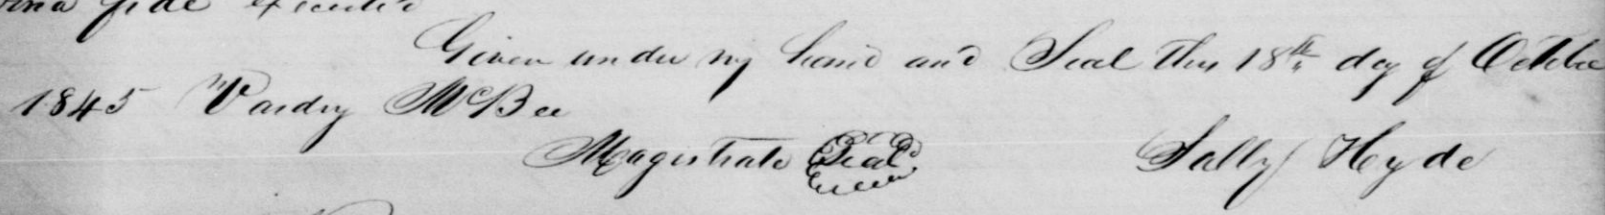 fide executed
Given under my hand and Seal this 18th day of October
1845 Vardry McBee
Magistrate Seal Sally Hyde